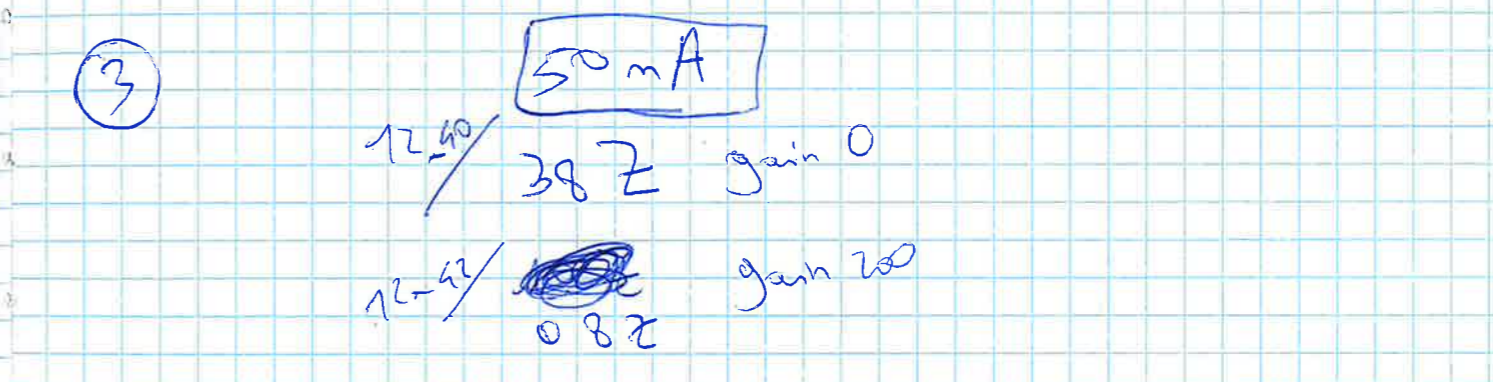 3
50 nA
12-40/ 38 Z gain 0
12-42/ gain 200
08 Z